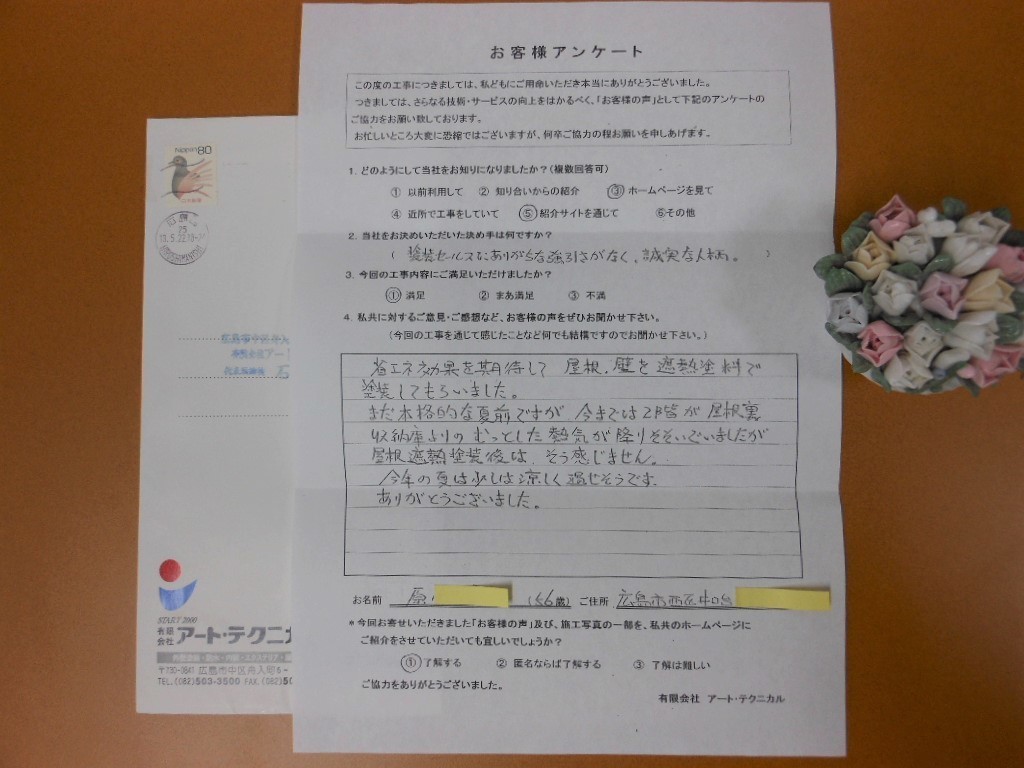 お客様アンケート
この度の工事につきましては、私どもにご用命いただき本当にありがとうございました。
つきましては、さらなる技術・サービスの向上をはかるべく、「お客様の声」として下記のアンケートの
ご協力をお願い致しております。
お忙しいところ大変に恐縮ではございますが、何卒ご協力の程お願いを申しあげます。
1. どのようにして当社をお知りになりましたか?(複数回答可)
① 以前利用して ② 知り合いからの紹介 ③ ホームページを見て
④ 近所で工事をしていて ⑤ 紹介サイトを通じて ⑥その他
2. 当社をお決めいただいた決め手は何ですか?
( 塗装セールスにありがちな強引さがなく、誠実な人柄。 )
3. 今回の工事内容にご満足いただけましたか?
① 満足 ② まあ満足 ③ 不満
4. 私共に対するご意見・ご感想など、お客様の声をぜひお聞かせ下さい。
(今回の工事を通じて感じたことなど何でも結構ですのでお聞かせ下さい。)
省エネ効果を期待して 屋根、壁を遮熱塗料で
塗装してもらいました。
まだ本格的な夏前ですが、今までは2階が屋根裏
収納庫よりの むっとした 熱気が降りそそいでいましたが
屋根遮熱塗装後は、そう感じません。
今年の夏は少しは涼しく過ごせそうです。
ありがとうございました。
お名前 原 (56歳) ご住所 広島市西区
*今回お寄せいただきました「お客様の声」及び、施工写真の一部を、私共のホームページに
ご紹介をさせていただいても宜しいでしょうか?
① 了解する ② 匿名ならば了解する ③ 了解は難しい
ご協力をありがとうございました。
有限会社 アート・テクニカル
NIPPON 80
広島市中区舟入
START 2000
有限会社 アート・テクニカ
〒730-0841 広島市中区舟入町6-
TEL.(082)503-3500 FAX.(082)50